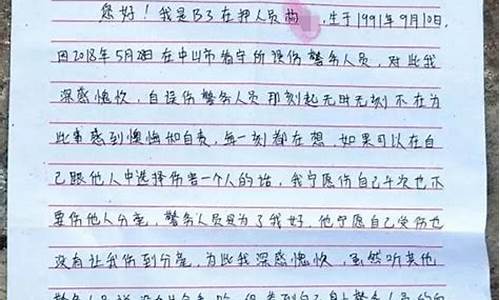 您好！我是B3在押人员尚 ，生于1991年9月10日.
因2018年5月28日在中山市看守所误伤警务人员，对此我
深感愧疚，自误伤警务人员那刻起无时无刻不在为
此事感到懊悔和自责，每一刻都在想，如果可以在自
己跟他人中选择伤害一个人的话，我宁愿伤自己千次也不
要伤他人分毫，警务人员是为了我好，他宁愿自己受伤也
没有让我伤到分毫，为此我深感愧疚，虽然听其他
警务人员说没有什么